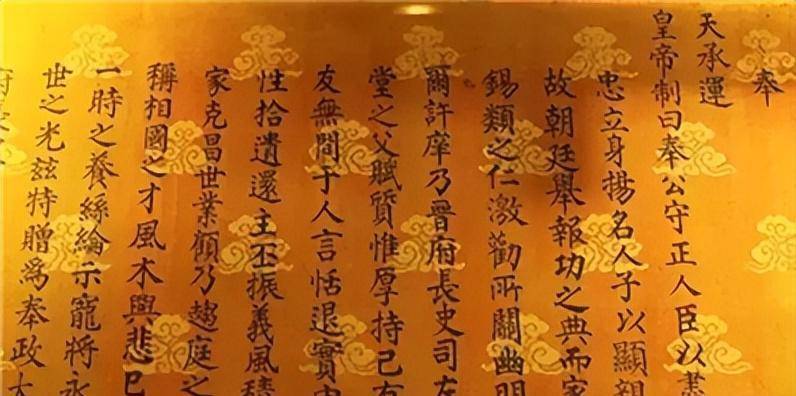 奉
天承運
皇帝制曰奉公守正人臣以盡
忠立身揚名人子以顯親
故朝廷舉報功之典而家
錫類之仁激勸所關幽明
爾許庠乃晉府長史司左
堂之父賦質惟厚持己有
友無間于人言恬退實由
性拾遺還主丕振義風積
家克昌世業顧乃趨庭之
稱相國之才風木興悲已
一時之養絲綸示寵將永
世之光茲特贈為奉政大
府長